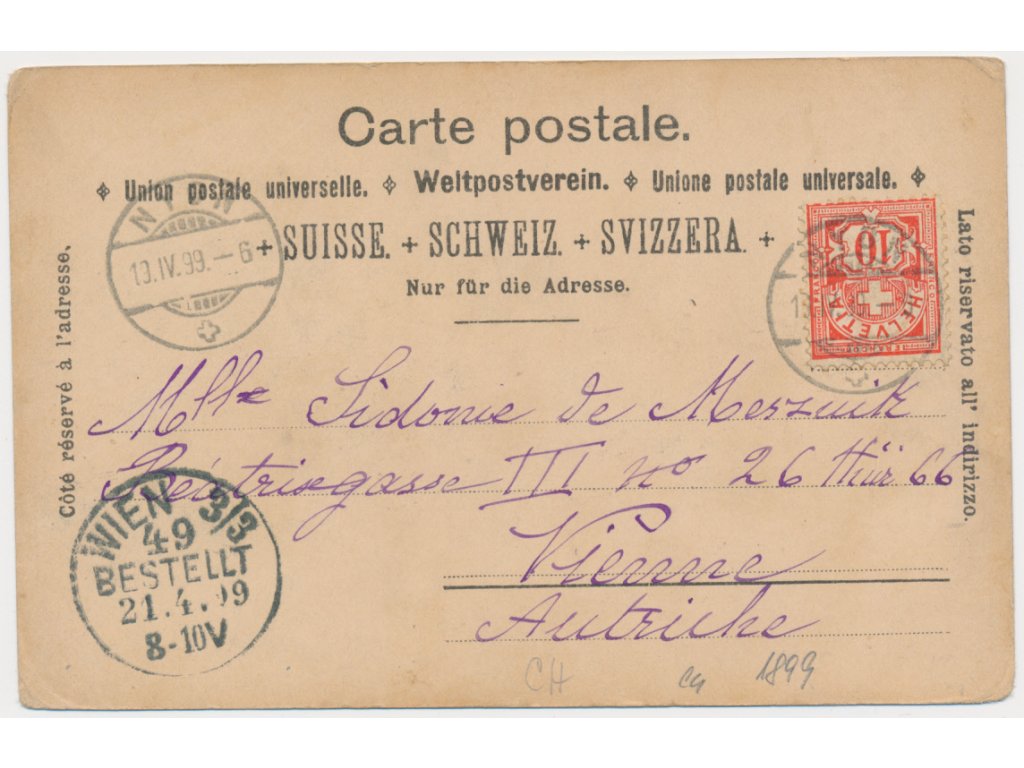 Carte postale.
Union postale universelle. Weltpostverein. Unione postale universale.
+ SUISSE. + SCHWEIZ. + SVIZZERA. +
Nur für die Adresse.
Côté réservé à l'adresse.
Lato riservato all' indirizzo.
NYON
19.IV.99.-6
10
HELVETIA
FRANCO
Mlle Sidonie de
Béatrixgasse III no 26 Thür 66
Vienne
Autriche
WIEN 3/3
49
BESTELLT
21.4.99
8-10V
CH
1899